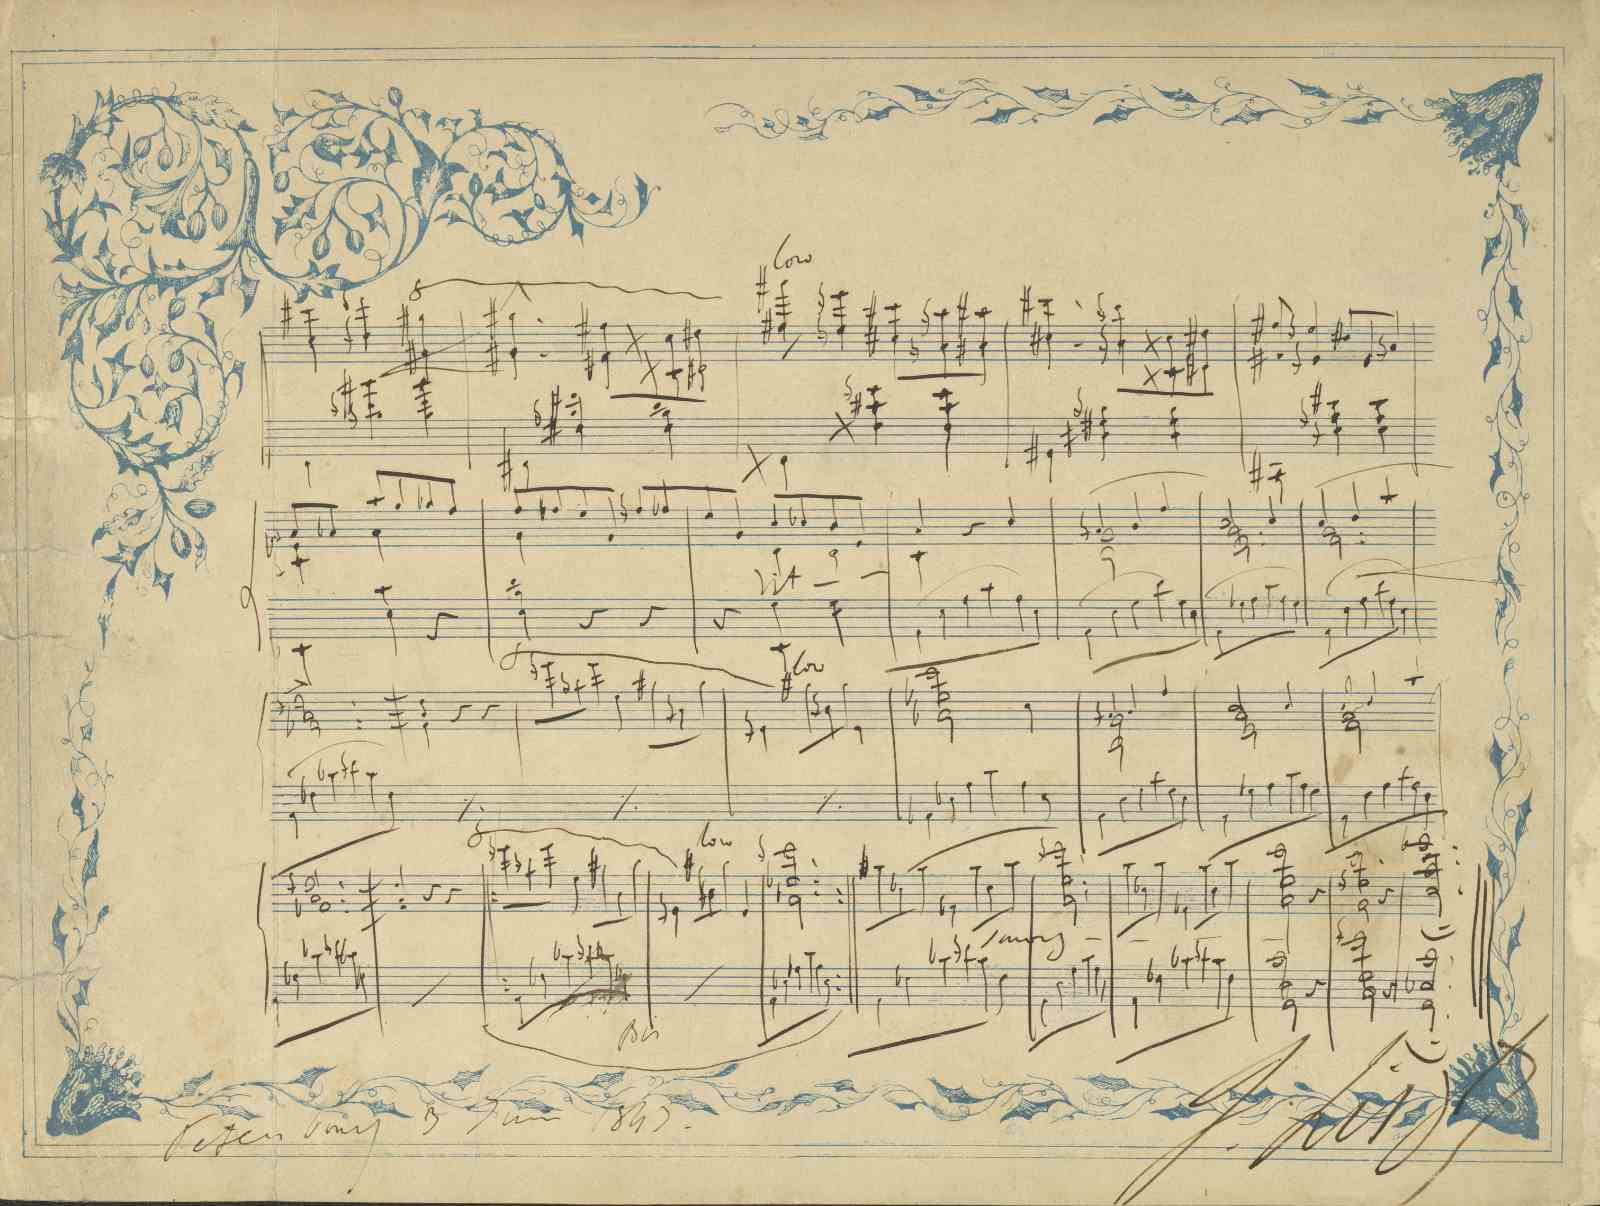 8
loco
rit
8
loco
8
loco
smorz
Bis
Petersbourg 3 Juin 1843.
F. Liszt